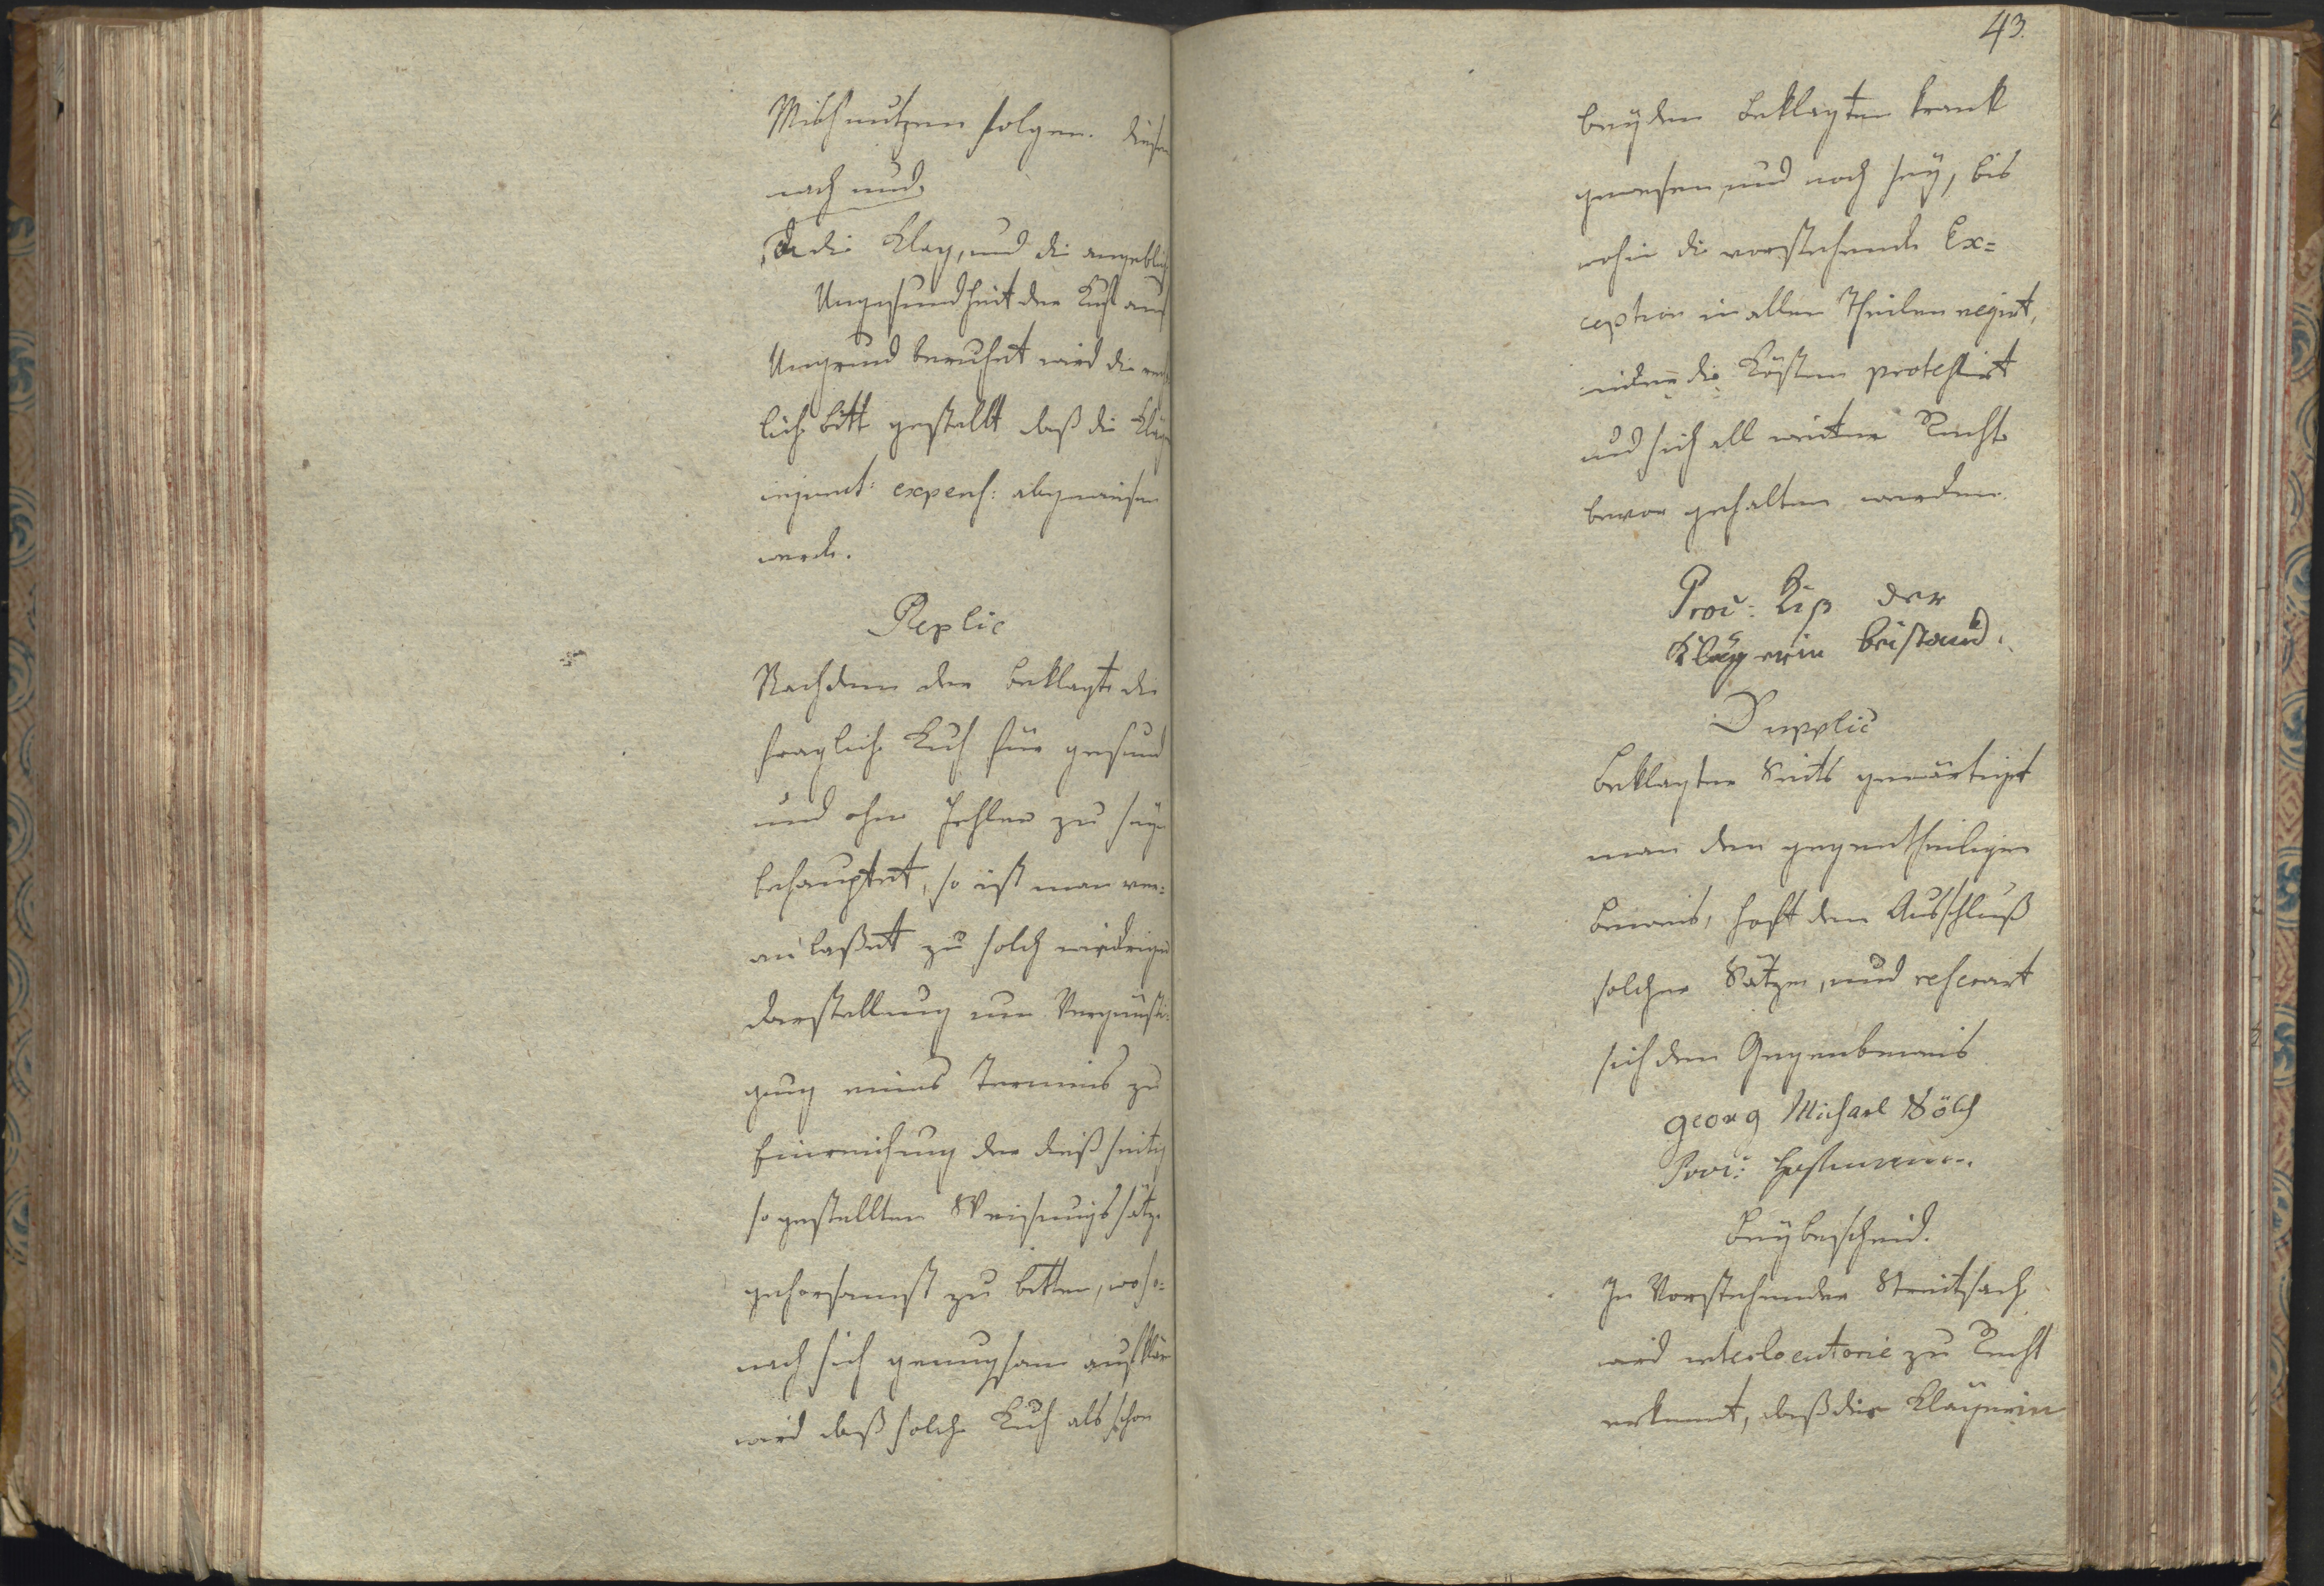 Milchnutzen folgen. diesem
nach und,
Da die Klag, und die angeblich
Ungesundheit der Kuh auf
Ungrund beruhet wird die recht
liche bitt gestellt daß die Kläger
injunct: expens: abgewiesen
werde.
Replic
Nachdem der beklagte die
fragliche Kuh für gesund
und ohne Fehler zu seyn
behauptet, so ist man ver=
anlaßet zu solch wiedriger
darstellung um Vergünsti=
gung eines Termins zu
Einreichung der dießseitig
so gestellten Weissungssätze
gehorsamst zu bitten, woso=
nach sich genugsam aufklären
wird daß solche Kuh als schon
43.
beyden beklagten krank
gewesen und noch sey, bis
wohin die vorstehende Ex=
ception in allen Theilen negirt,
wider die Kösten protestirt
und sich all weitere Rechte
bevor gehalten werden.
Proc: Riß der
Klägerin beistand.
Dupplic
beklagter Seits gewärtiget
man den gegentheiligen
beweis, hoft den Ausschluß
solcher Sätzen, und reservirt
sich den Gegenbeweis
georg Michael Völch
Proc:
Beybescheid.
In Vorstehender Streitsach
wird interlocutorie zu Recht
erkennt, daß die Klägerin